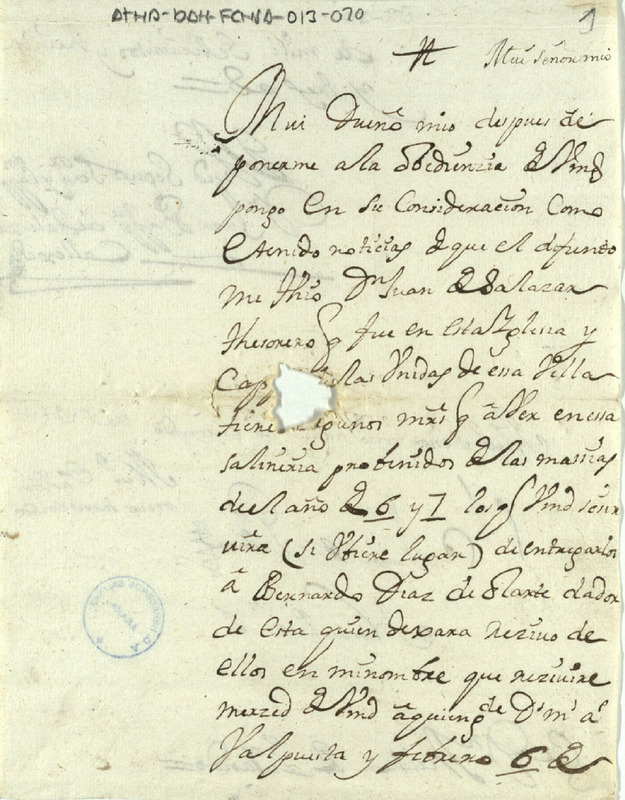 ATHA-DAH-FCHA-013-070
1
Mui señor mio
Mui Dueño mio despues de
ponerme a la obediencia de Vmd
pongo en su Consideracion Como
e tenido noticias de que el difunto
mi thio Dn Juan de Salazar
thesorero q fue en esta Iglesia y
Cap las Vnidas de esa Villa
tiene algunos mrs q aber en essa
salineria probenidos de las massias
del año de 6 y 7 los q Vmd se ser
uira (si Vbiere lugar) de entregarlos
a Bernardo Diaz de Olarte dador
de esta quien dexara reziuo de
ellos en mi nombre que reziuire
merzed de Vmd a quien g de Ds ms as
Valpuesta y febrero 6 de